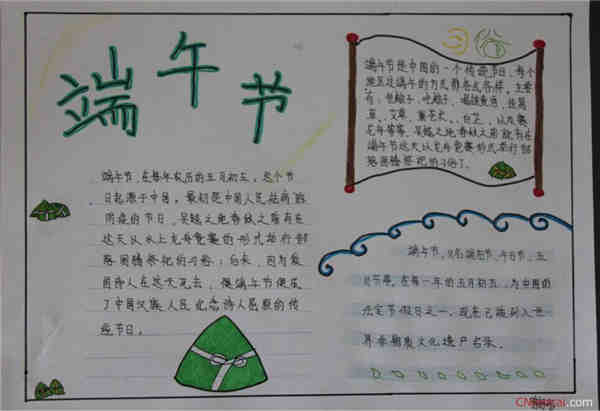 端午节
端午节,在每年农历的五月初五,这个节
日起源于中国,最初是中国人民祛病防
疫的节日,吴越之地春秋之前有在
这天以水上龙舟竞渡的形式举行部
落图腾祭祀的习俗;后来,因为爱
国诗人在这天死去,便端午节便成
了中国汉族人民纪念诗人屈原的传
统节日。
习俗
端午节是中国的一个传统节日,每个
地区过端午的方式都各式各样,主要
有:
龙舟等等,吴越之地春秋之前就有在
端午节这天以龙舟竞赛形式举行部
落图腾祭祀的习俗了。
端午节,又名端阳节、午日节、五
月节等,在每一年的五月初五,为中国的
法定节假日之一,现在已被列入世
界非物质文化遗产名录。